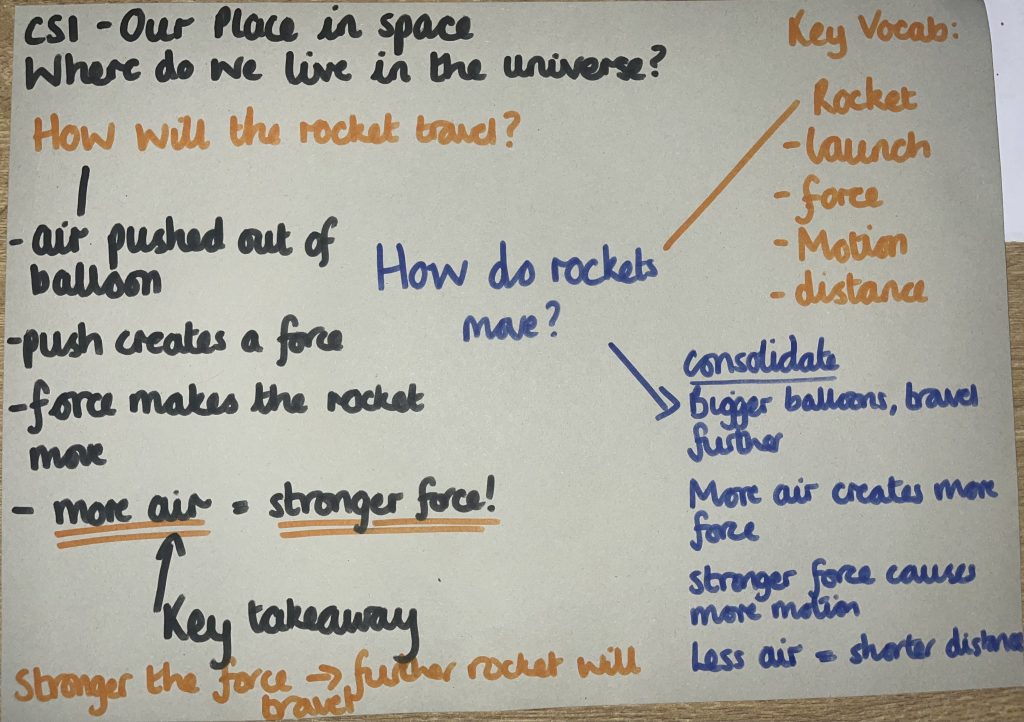 CSI - Our Place in space
Where do we live in the universe?
How will the rocket travel?
- air pushed out of
balloon
- push creates a force
- force makes the rocket
move
- more air = stronger force!
Key takeaway
Stronger the force → further rocket will
travel
How do rockets
move?
Key Vocab:
Rocket
- launch
- force
- Motion
- distance
consolidate
Bigger balloons, travel
further
More air creates more
force
stronger force causes
more motion
Less air = shorter distance